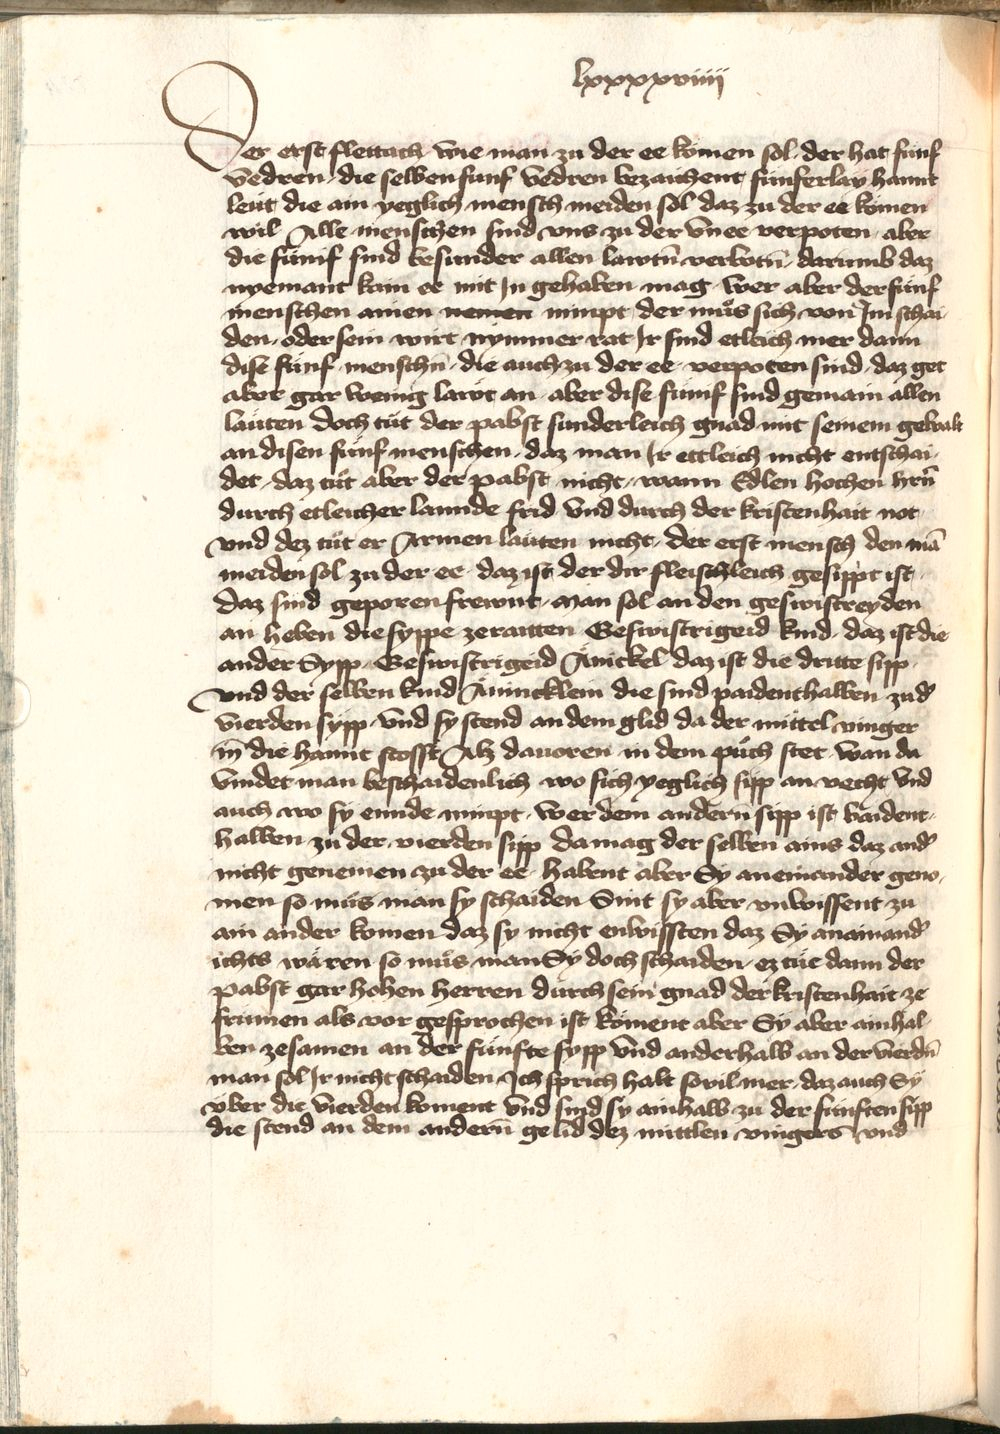 lxxxxviiij
Der erst flettach wie man zu der ee komen sol · der hat fünf
vedren · die selben funf vedren bezaichent fünferlay hannt
leüt die ain yeglich mensch meiden sol daz zu der ee komen
wil Alle menschen sind vns zu der vnee verpoten · aber
die fünf sind besunder allen lawtn̄ verbotn̄ · darumb daz
nyemant kain ee mit Jn gehaben mag · wer aber der fünf
menschen ainen nemen nimpt der můs sich von Jm schai
den · oder sein wirt nymmer rat Jr sind etleich mer dann
dise fünf menschn̄ · die auch zu der ee · verpoten sind · daz get
aber gar wenig lawt an · aber dise fünf sind gemain allen
läuten Doch tüt der pabst sunderleich gnad mit seinem gebalt
an disen fünf menschen · daz man Jr ettleich nicht entschai ·
det · daz tüt aber der pabst nicht · wann Edlen hochen hrn̄
durch etleicher lannde frid vnd durch der kristenhait not ·
vnd dez tüt er Armen läuten nicht · der erst mensch den mā
meiden sol zu der ee · daz ist der dir fleischleich gesippt ist ·
daz sind geporen frewnt · Man sol an den geswistreyden
an heben die syppe ze raitten Geswistrigeid kind · daz ist die
ander Sypp · Geswistrigeid Äinickel daz ist die dritte sipp ·
vnd der selben kind Äinincklein die sind paidenthalben zu d̄
vierden sypp · vnd sy stend an dem glid da der mittel vinger
in die hannt stosst Alz dauoren in dem püch stet wan da
vindet man beschaidenlich wo sich yeglich sipp an vecht vnd
auch wo sy ennde nimpt · wer dem andern̄ sipp ist baident ·
halben · zu der vierden sipp da mag der selben ains daz and̄
nicht genemen zu der ee · habent aber Sy an einander geno ·
men so müs man sy schaiden Sint sy aber vnwissent zu
ain ander komen daz sy nicht enwissten daz Sy an ainand̄
ichts wären so můs man Sy doch schaiden · ez tüe dann der
pabst gar hohen herren durch sein gnad der kristenhait ze
frumen als vor gesprochen ist koment aber Sy aber ainhal ·
ben zesamen an der fünfte sypp vnd anderhalb an der vierdn̄
man sol Jr nicht schaiden Jch sprich halt so vil mer · daz auch Sy
vber die vierden koment vnd sind sy ainhalb zu der fünften sipp
die stend an dem andern̄ gelid dez mittlen vingers vnd